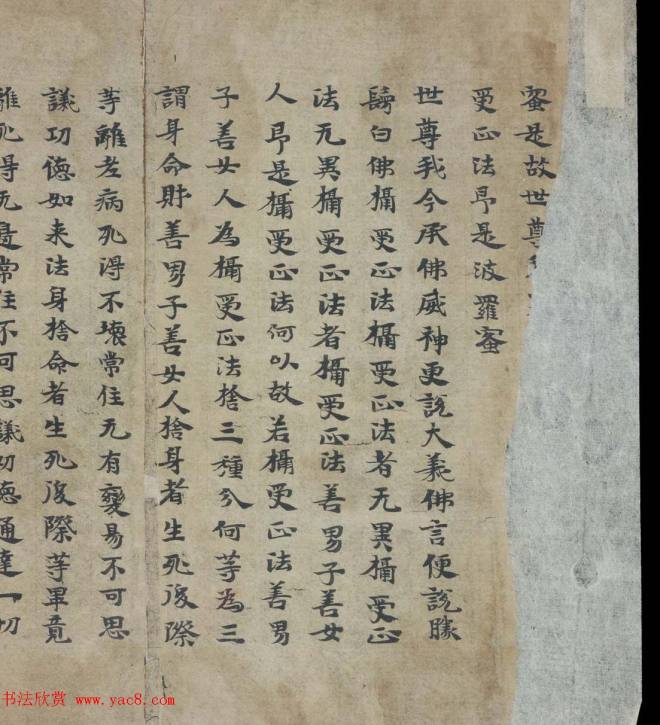 蜜是故世尊
受正法即是波羅蜜
世尊我今承佛威神更說大義佛言便說勝
鬘白佛攝受正法攝受正法者无異攝受正
法无異攝受正法者攝受正法善男子善女
人即是攝受正法何以故若攝受正法善男
子善女人為攝受正法捨三種分何等為三
謂身命財善男子善女人捨身者生死後際
等離老病死得不壞常住无有變易不可思
議功德如来法身捨命者生死後際等畢竟
離死得无邊常住不可思議功德通達一切
书法欣赏 www.yac8.com